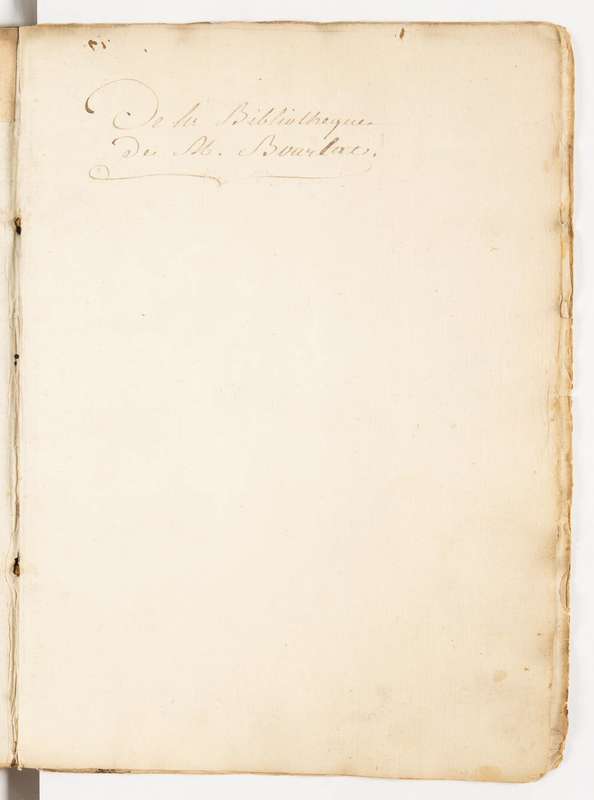 De la Bibliotheque
De M. Bourlat.